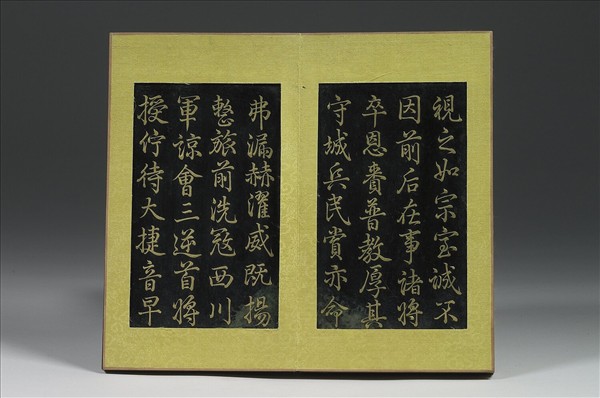 視之如宗室誠不
因前后在事諸將
卒恩賚普敷厚其
守城兵民賞亦命
弗漏赫濯威既揚
整旅前洗冦西川
軍諒會三逆首將
授佇待大捷音早